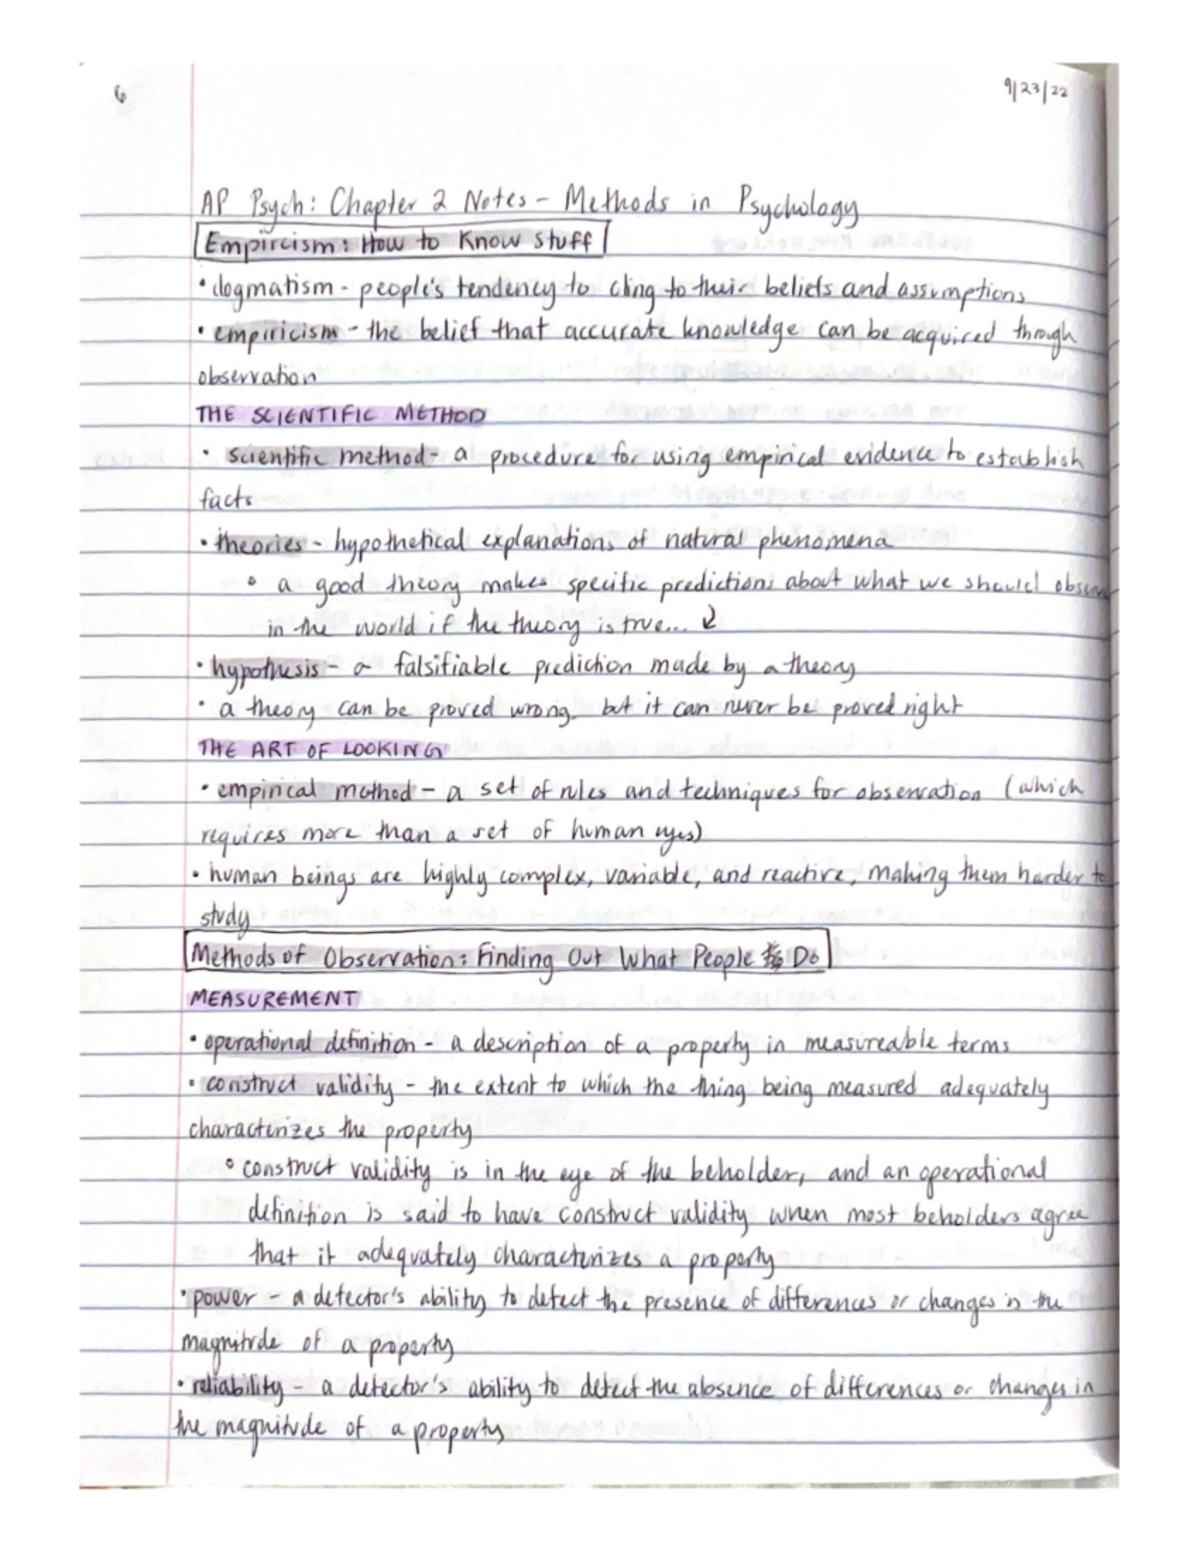 6
9/23/22
AP Psych: Chapter 2 Notes - Methods in Psychology
Empircism: How to Know Stuff
• dogmatism - people's tendency to cling to their beliefs and assumptions
• empiricism - the belief that accurate knowledge can be acquired through
observation
THE SCIENTIFIC METHOD
• scientific method - a procedure for using empirical evidence to establish
facts
• theories - hypothetical explanations of natural phenomena
∘ a good theory makes specific predictions about what we should observe
in the world if the theory is true... ↙
• hypothesis - a falsifiable prediction made by a theory
• a theory can be proved wrong, but it can never be proved right
THE ART OF LOOKING
• empirical method - a set of rules and techniques for observation (which
requires more than a set of human eyes)
• human beings are highly complex, variable, and reactive, making them harder to
study
Methods of Observation: Finding Out What People Do
MEASUREMENT
• operational definition - a description of a property in measureable terms
• construct validity - the extent to which the thing being measured adequately
characterizes the property
∘ construct validity is in the eye of the beholder, and an operational
definition is said to have construct validity when most beholders agree
that it adequately characterizes a property
• power - a detector's ability to detect the presence of differences or changes in the
magnitude of a property
• reliability - a detector's ability to detect the absence of differences or changes in
the magnitude of a property